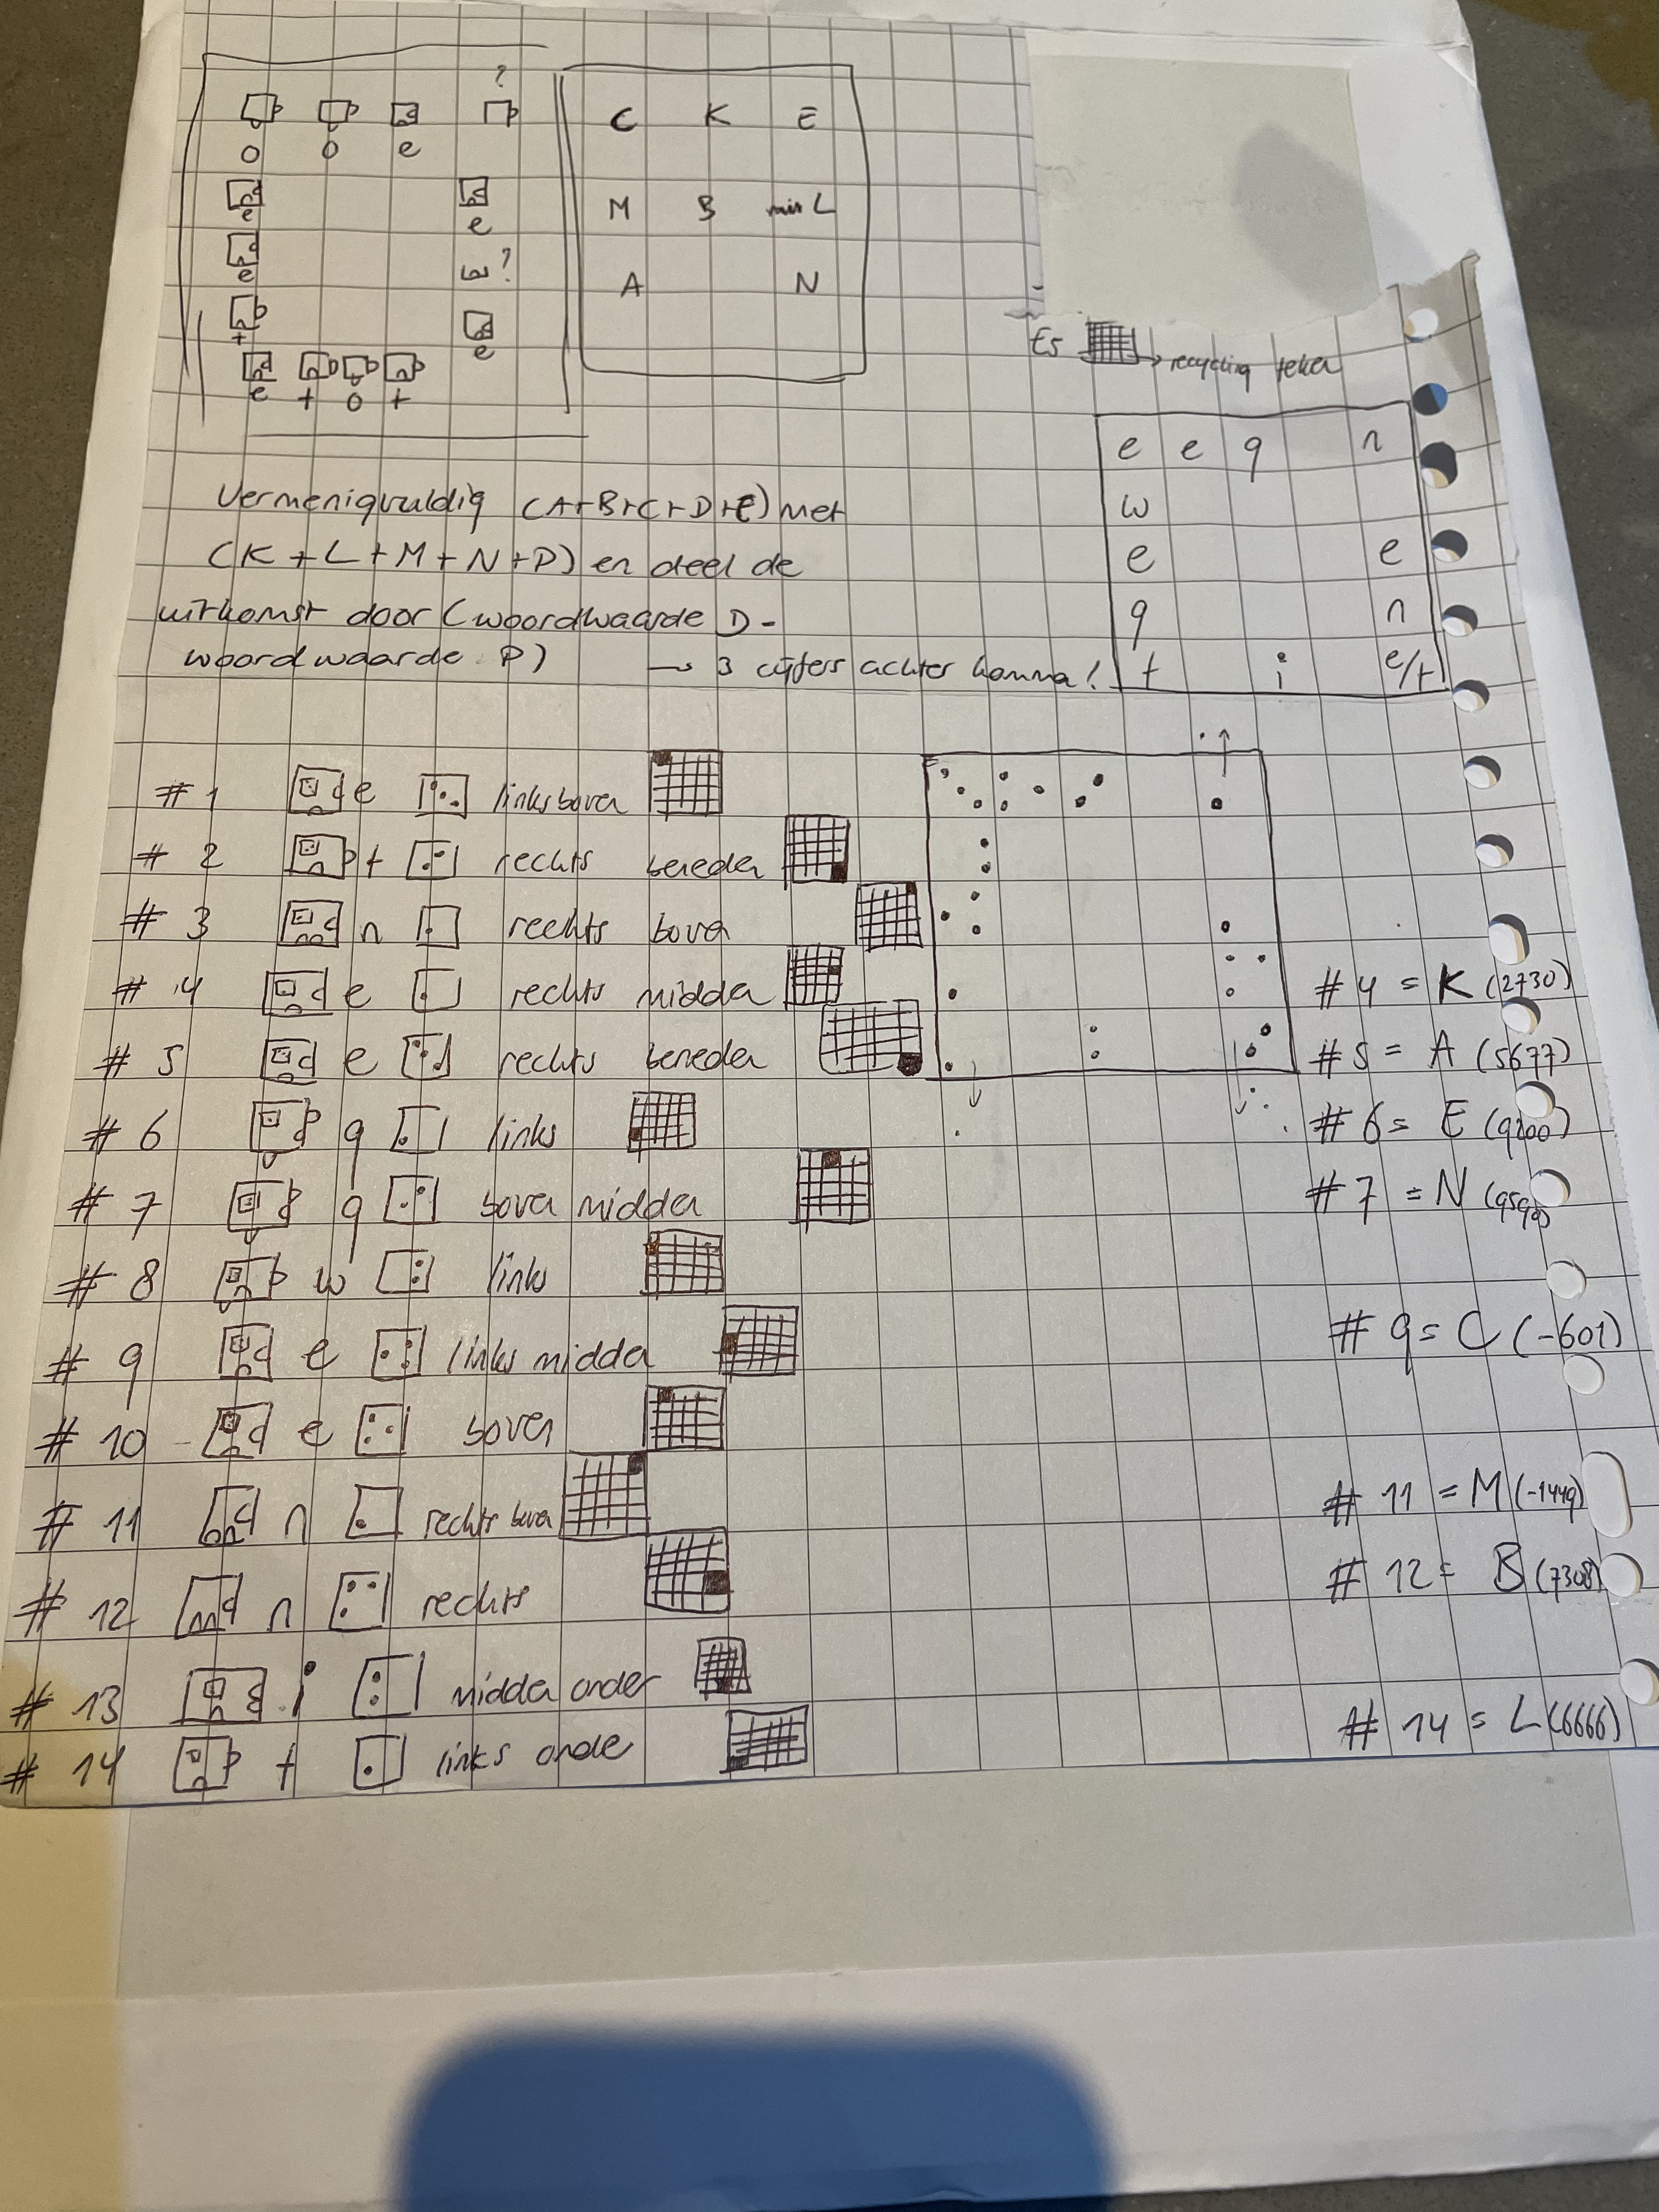 ?
C K E
o o e
e
M B min L
e
e
?
A N
+
e
e + o +
Es → recycling teken
e e q n
w
e e
q n
t i e/t
Vermenigvuldig (A+B+C+D+E) met
(K+L+M+N+P) en deel de
uitkomst door (woordwaarde D-
woordwaarde P) → 3 cijfers achter komma!
# 1 e linksboven
# 2 t rechts beneden
# 3 n rechts boven
# 4 e rechts midden
# 4 = K (2730)
# 5 e rechts beneden
# 5 = A (5677)
# 6 q links
# 6 = E (9200)
# 7 q boven midden
# 7 = N
# 8 w links
# 9 e links midden
# 9 = C (-601)
# 10 e boven
# 11 n rechts boven
# 11 = M (-1449)
# 12 n rechts
# 12 = B (7308)
# 13 i midden onder
# 14 t links onder
# 14 = L (6666)